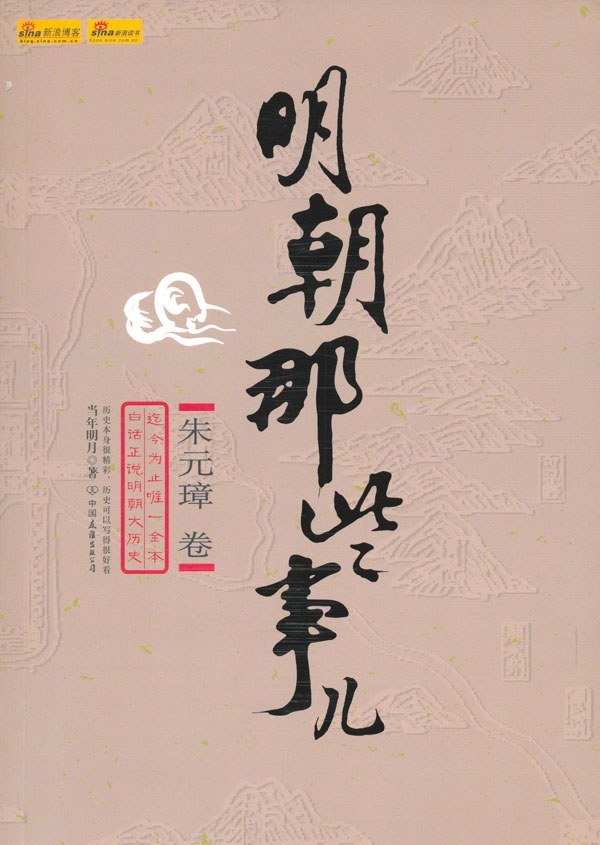 sina 新浪博客
blog.sina.com.cn
sina 新浪读书
book.sina.com.cn
明朝那些事儿
朱元璋 卷
迄今为止唯一全本
白话正说明朝大历史
历史本身很精彩,历史可以写得很好看
当年明月 著
中国友谊出版公司